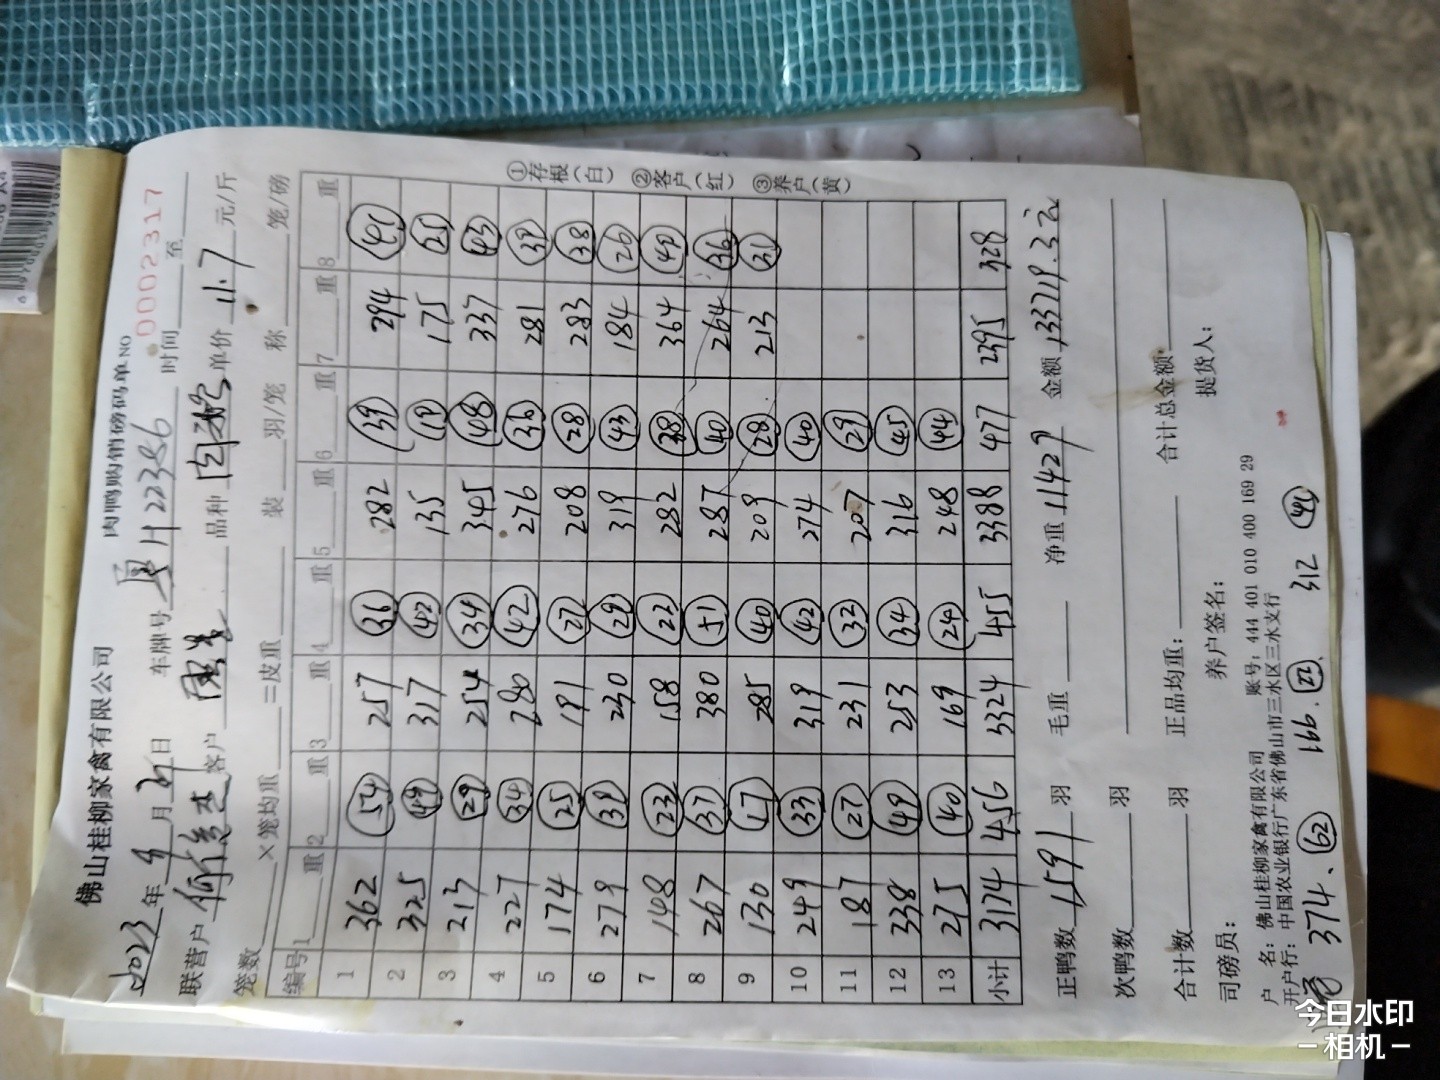 佛山桂柳家禽有限公司 肉鸭购销磅码单 NO 0002317
2023年9月21日 车牌号 粤H22386 时间 至
联营户 何 客户 品种 单价 11.7 元/斤
笼数 ×笼均重 三皮重 装 羽/笼 称 笼/磅
编号 1 重 2 重 3 重 4 重 5 重 6 重 7 重 8 重
1 362 54 257 36 282 39 294 41
2 325 49 317 42 135 19 175 25
3 213 29 254 34 345 48 337 43
4 227 34 280 42 276 36 281 39
5 174 25 191 27 208 28 283 38
6 279 39 230 29 319 43 184 26
7 148 23 158 22 282 38 364 49
8 267 37 380 51 287 40 264 36
9 130 17 285 40 209 28 213 31
10 249 33 319 42 274 40
11 187 27 231 32 207 29
12 338 49 253 34 316 45
13 275 40 169 24 248 44
小计 3174 456 3324 455 3388 477 2395 328
①存根(白) ②客户(红) ③养户(黄)
正鸭数 1591 羽 毛重 净重 11429 金额 133719.3元
次鸭数 羽
合计数 羽 正品均重: 合计总金额
司磅员: 养户签名: 提货人:
户 名: 佛山桂柳家禽有限公司 账号: 444 401 010 400 169 29
开户行: 中国农业银行广东省佛山市三水区三水支行
374、62 166. 22 312 41
今日水印
相机